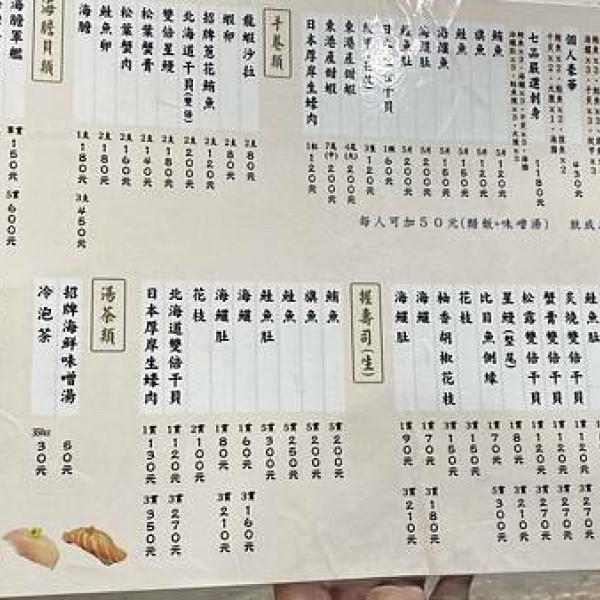 個人豪華
430元
七品嚴選刺身
1180元
鮪魚
5片
120元
旗魚
5片
120元
鮭魚
5片
150元
海鱺魚
5片
150元
海鱺肚
5片
200元
鮭魚肚
5片
200元
1顆
60元
3隻
120元
東港產甜蝦
4尾(大)
200元
東港產甜蝦
7尾(中)
200元
日本厚岸生蠔肉
1粒
120元
每人可加50元(醋飯+味噌湯)
手卷類
龍蝦沙拉
2支
80元
蝦卵
2支
80元
招牌蔥花鮪魚
2支
120元
北海道干貝(雙倍)
2支
200元
雙倍星鰻
2支
180元
松葉蟹膏
2支
140元
松葉蟹肉
2支
160元
鮭魚卵
2支
180元
海膽
1支
180元
3支
450元
海膽貝類
海膽軍艦
單貫
150元
5貫
600元
鮭魚肚
炙燒雙倍干貝
1貫
120元
3貫
270元
蟹膏雙倍干貝
1貫
120元
3貫
270元
松露雙倍干貝
1貫
120元
3貫
270元
星鰻(整尾)
1貫
80元
3貫
210元
比目魚側緣
1貫
70元
5貫
300元
花枝
3貫
150元
柚香胡椒花枝
3貫
150元
海鱺
1貫
70元
3貫
180元
海鱺肚
1貫
90元
3貫
210元
握壽司(生)
鮪魚
5貫
200元
旗魚
5貫
200元
鮭魚
5貫
250元
鮭魚肚
5貫
300元
海鱺
1貫
60元
3貫
160元
海鱺肚
1貫
80元
3貫
210元
花枝
2貫
100元
北海道雙倍干貝
1貫
120元
3貫
270元
日本厚岸生蠔肉
1貫
130元
3貫
350元
湯茶類
招牌海鮮味噌湯
60元
冷泡茶
350cc
30元